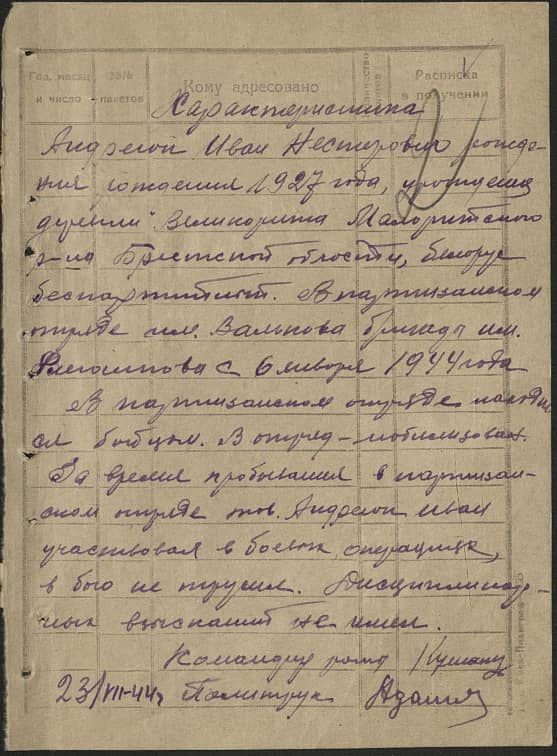 Год, месяц и число
№№ пакетов
Кому адресовано
Расписка в получении
Характеристика
Андреюк Иван Нестерович рожде-
ния рождения 1927 года, уроженец
деревни Великорита Малоритского
р-на Брестской области, белорус
беспартийный. В партизанском
отряде им. бригады им.
с 6 января 1944 года
В партизанском отряде находил
ся бойцом. В отряд – мобилизован.
За время пребывания в партизан-
ском отряде тов. Андреюк Иван
участвовал в боевых операциях,
в бою не трусил. Дисциплинар-
ных взысканий не имел.
Командир роты
23/VII-44г Политрук